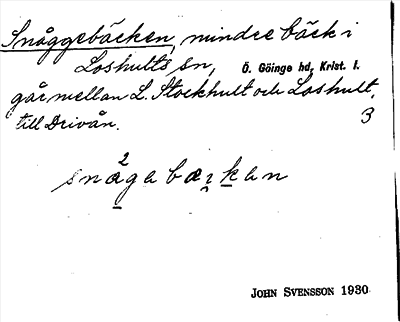 Snåggebäcken, mindre bäck i
Loshults sn, Ö. Göinge hd, Krist. l.
går mellan L. Stockhult och Loshult,
till Drivån. 3
JOHN SVENSSON 1930